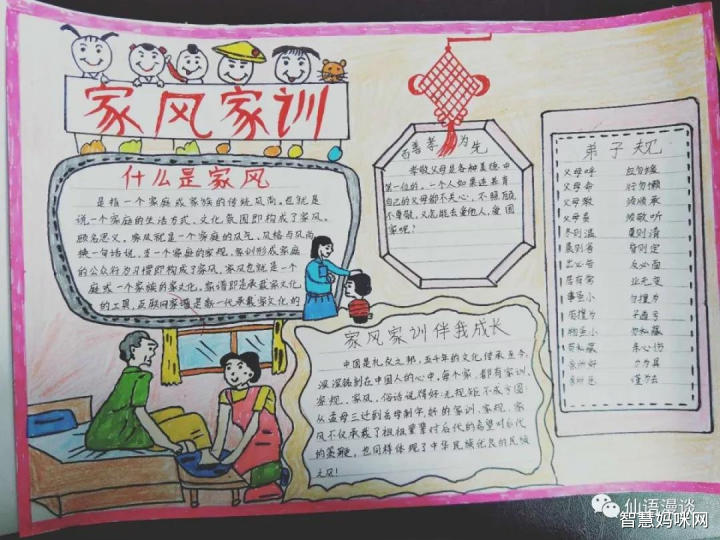 家风家训
什么是家风
是指一个家庭或家族的传统风尚。也就是
说一个家庭的生活方式、文化氛围即构成了家风。
顾名思义，家风就是一个家庭的风气、风格与风尚
换一句话说，是一个家庭的家规、家训形成家庭
的公众行为习惯即构成了家风。家风也就是一个
庭或一个家族的家文化。家谱即是承载家文化
的工具，
百善孝为先
孝敬父母是各种美德中
第一位的。一个人如果连养育
自己的父母都不关心，不照顾
不尊敬，又怎能去爱他人，爱国
家呢？
家风家训伴我成长
中国是礼仪之邦，五千年的文化传承至今，
深深铭刻在中国人的心中，每个家，都有家训，
家规、家风。俗话说得好：无规矩不成方圆：
从孟母三迁到岳母刺字，好的家训、家规、家
风不仅承载了祖祖辈辈对后代的希望对后代
的，也同样体现了中华民族优良的民族
之风！
弟子规
父母呼 应勿缓
父母命 行勿懒
父母教 须敬听
父母责 须顺承
冬则温 夏则清
晨则省 昏则定
出必告 反必面
居有常 业无变
事虽小 勿擅为
苟擅为 子道亏
物虽小 勿私藏
苟私藏 亲心伤
仙语漫谈
智慧妈咪网